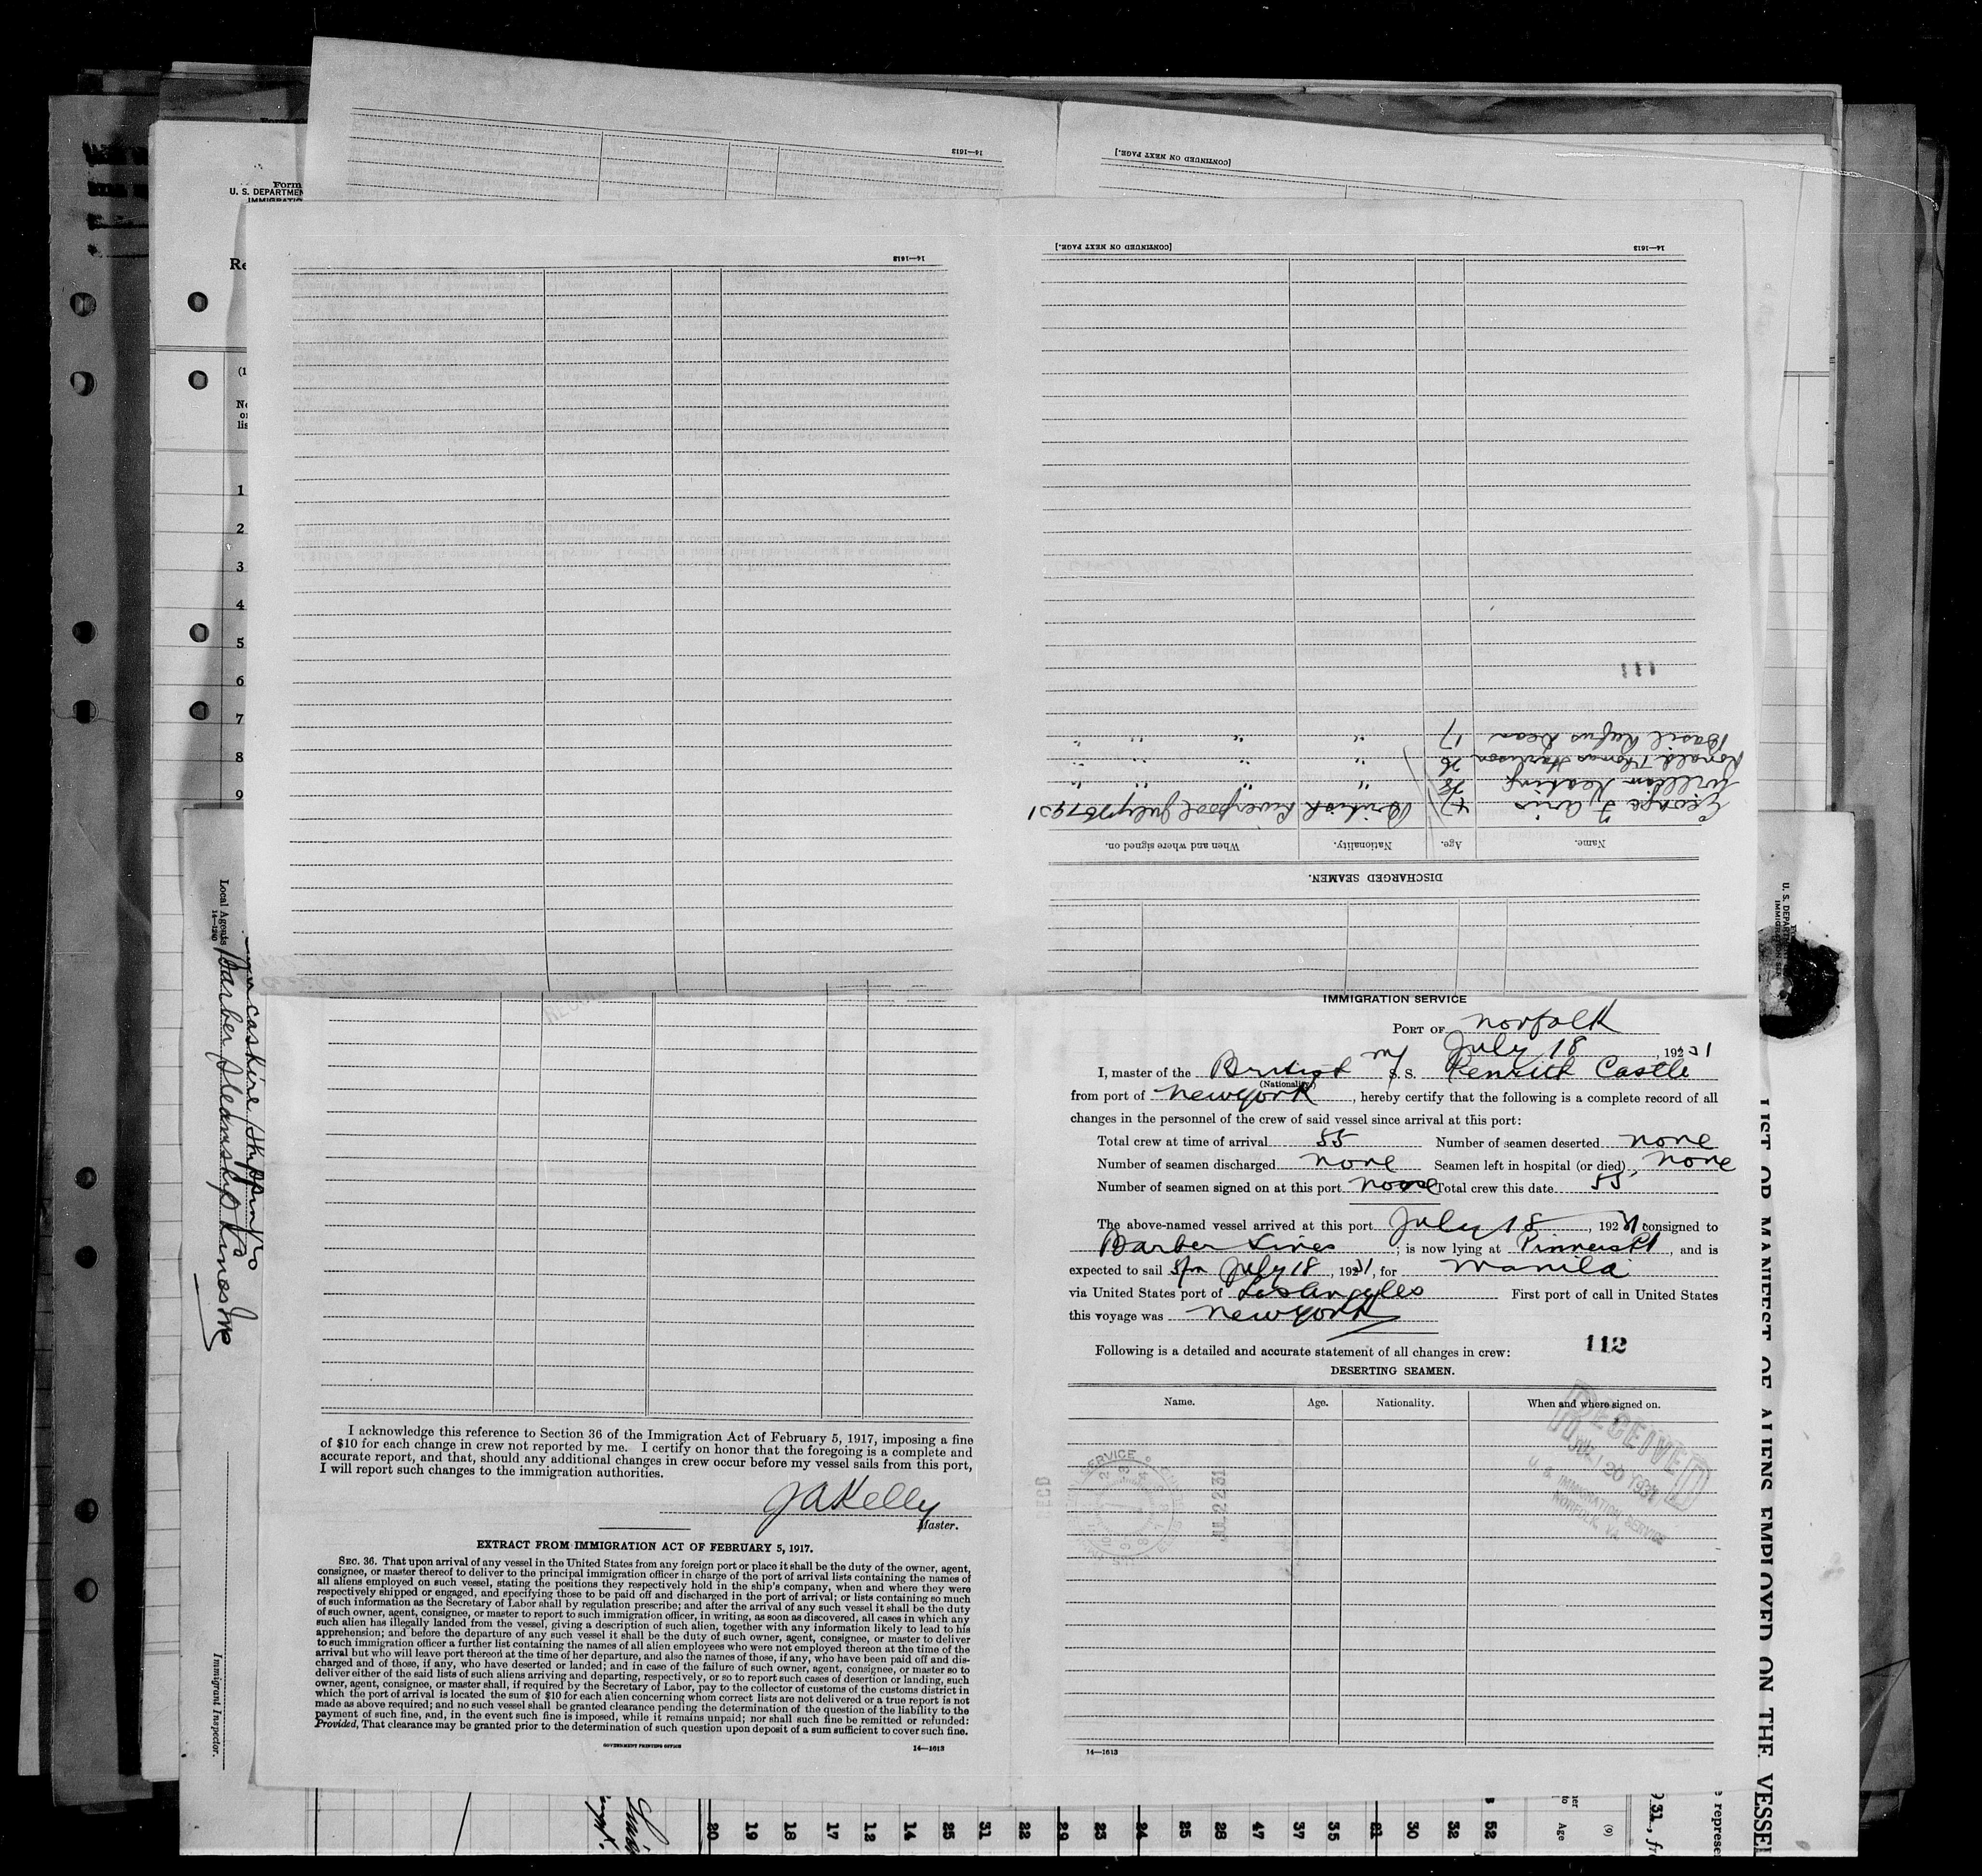 Form
U. S. DEPARTMEN
IMMIGRATIO
14—1613
[CONTINUED ON NEXT PAGE.]
14—1613
[CONTINUED ON NEXT PAGE.]
14—1613
Re
(1
No
or
lis
1
2
3
4
5
6
7
8
9
DISCHARGED SEAMEN.
Name. Age. Nationality. When and where signed on.
George 47 British Liverpool July 1931
William Keating 28 " " " "
Ronald Thomas Harrison 26 " " " "
Basil Rufus Dean 17 " " " "
111
Local Agents Barber Steamship Lines Inc
14—1240
Immigrant Inspector.
IMMIGRATION SERVICE
PORT OF Norfolk
July 18, 1931
I, master of the British M/S. S. Penrith Castle
(Nationality)
from port of New york, hereby certify that the following is a complete record of all
changes in the personnel of the crew of said vessel since arrival at this port:
Total crew at time of arrival 55 Number of seamen deserted none
Number of seamen discharged none Seamen left in hospital (or died) none
Number of seamen signed on at this port none Total crew this date 55
The above-named vessel arrived at this port July 18, 1931 consigned to
Barber Lines; is now lying at Pinners Pt, and is
expected to sail 5pm July 18, 1931, for Manila
via United States port of Los Angeles First port of call in United States
this voyage was New york
112
Following is a detailed and accurate statement of all changes in crew:
DESERTING SEAMEN.
Name. Age. Nationality. When and where signed on.
RECEIVED
JUL 20 1931
U. S. IMMIGRATION SERVICE
NORFOLK, VA.
JUL 22 31
14—1613
I acknowledge this reference to Section 36 of the Immigration Act of February 5, 1917, imposing a fine
of $10 for each change in crew not reported by me. I certify on honor that the foregoing is a complete and
accurate report, and that, should any additional changes in crew occur before my vessel sails from this port,
I will report such changes to the immigration authorities.
J A Kelly
Master.
EXTRACT FROM IMMIGRATION ACT OF FEBRUARY 5, 1917.
SEC. 36. That upon arrival of any vessel in the United States from any foreign port or place it shall be the duty of the owner, agent,
consignee, or master thereof to deliver to the principal immigration officer in charge of the port of arrival lists containing the names of
all aliens employed on such vessel, stating the positions they respectively hold in the ship's company, when and where they were
respectively shipped or engaged, and specifying those to be paid off and discharged in the port of arrival; or lists containing so much
of such information as the Secretary of Labor shall by regulation prescribe; and after the arrival of any such vessel it shall be the duty
of such owner, agent, consignee, or master to report to such immigration officer, in writing, as soon as discovered, all cases in which any
such alien has illegally landed from the vessel, giving a description of such alien, together with any information likely to lead to his
apprehension; and before the departure of any such vessel it shall be the duty of such owner, agent, consignee, or master to deliver
to such immigration officer a further list containing the names of all alien employees who were not employed thereon at the time of the
arrival but who will leave port thereon at the time of her departure, and also the names of those, if any, who have been paid off and dis-
charged and of those, if any, who have deserted or landed; and in case of the failure of such owner, agent, consignee, or master so to
deliver either of the said lists of such aliens arriving and departing, respectively, or so to report such cases of desertion or landing, such
owner, agent, consignee, or master shall, if required by the Secretary of Labor, pay to the collector of customs of the customs district in
which the port of arrival is located the sum of $10 for each alien concerning whom correct lists are not delivered or a true report is not
made as above required; and no such vessel shall be granted clearance pending the determination of the question of the liability to the
payment of such fine, and, in the event such fine is imposed, while it remains unpaid; nor shall such fine be remitted or refunded:
Provided, That clearance may be granted prior to the determination of such question upon deposit of a sum sufficient to cover such fine.
GOVERNMENT PRINTING OFFICE
14—1613
LIST OR MANIFEST OF ALIENS EMPLOYED ON THE VESSEL
20 19 18 17 12 14 25 31 22 29 23 24 25 28 47 37 35 31 30 32 52
Age
(9)